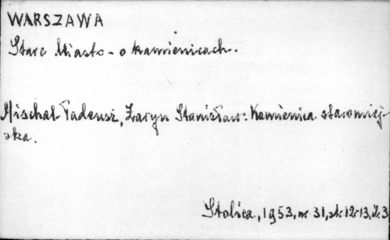 WARSZAWA
Stare Miasto - o kamienicach.
Mischal Tadeusz, Żaryn Stanisław: Kamienica staromiej-
ska.
Stolica, 1953, nr 31, str. 12-13, il. 3